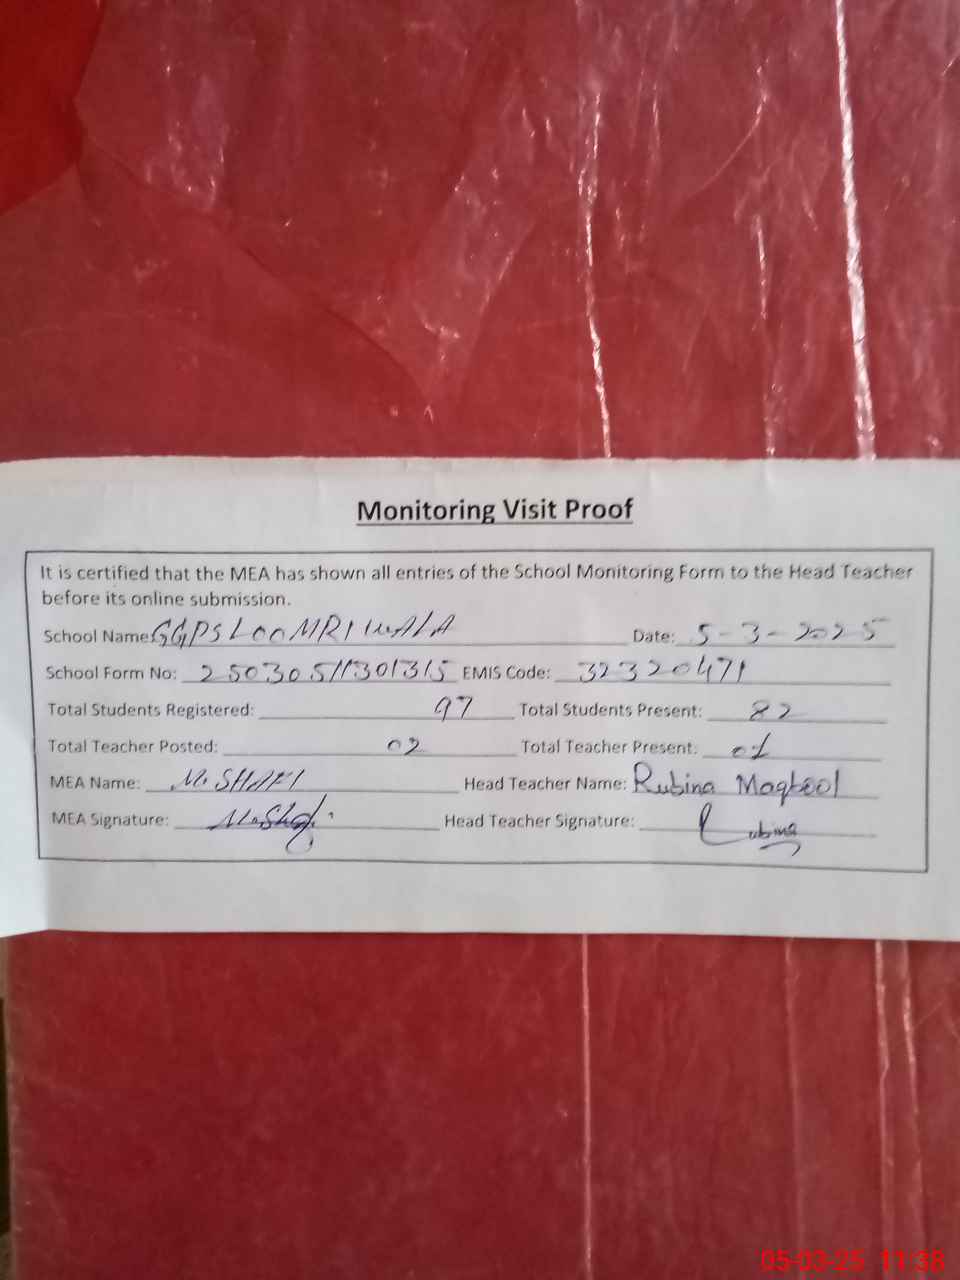 Monitoring Visit Proof
It is certified that the MEA has shown all entries of the School Monitoring Form to the Head Teacher
before its online submission.
School Name: GGPS LOOMRIWALA Date: 5-3-2025
School Form No: 25030511301315 EMIS Code: 32320471
Total Students Registered: 97 Total Students Present: 82
Total Teacher Posted: 02 Total Teacher Present: 01
MEA Name: M. SHAFI Head Teacher Name: Rubina Maqbool
MEA Signature: M.Shafi Head Teacher Signature: Rubina
05-03-25 11:38